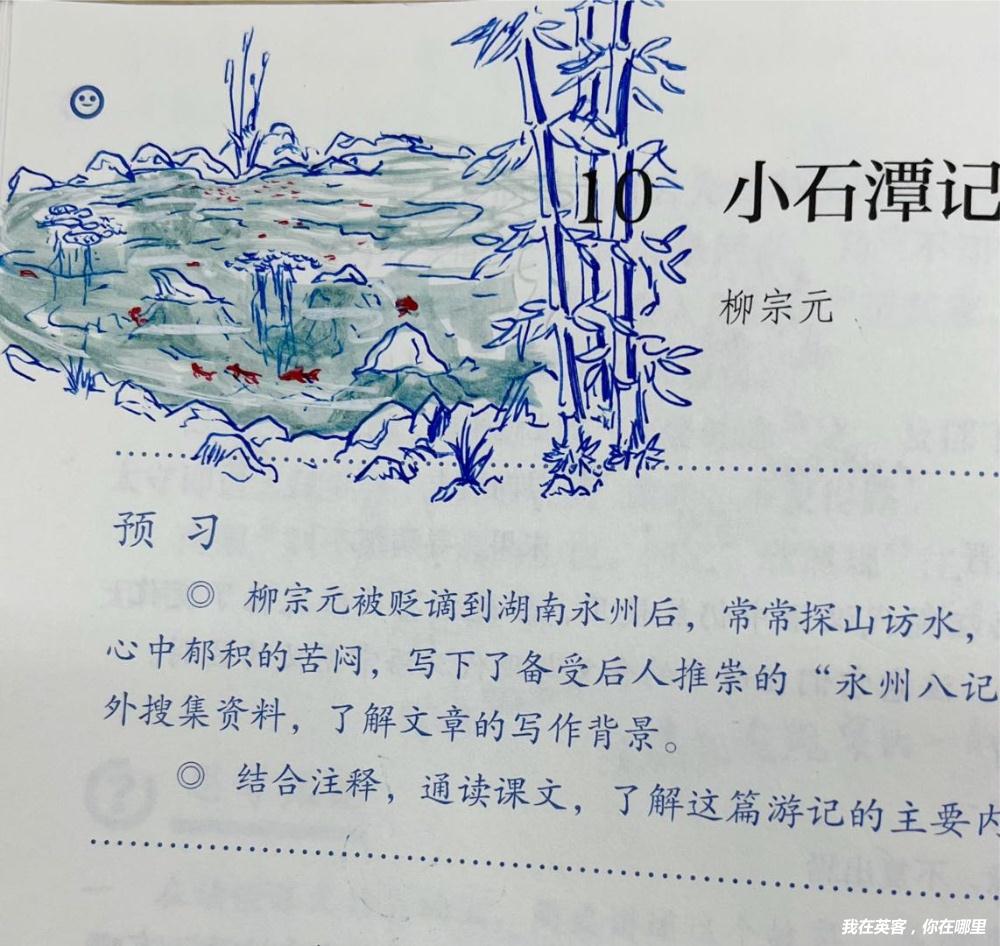 10 小石潭记
柳宗元
预 习
◎ 柳宗元被贬谪到湖南永州后，常常探山访水，
心中郁积的苦闷，写下了备受后人推崇的“永州八记
外搜集资料，了解文章的写作背景。
◎ 结合注释，通读课文，了解这篇游记的主要内
我在英客，你在哪里